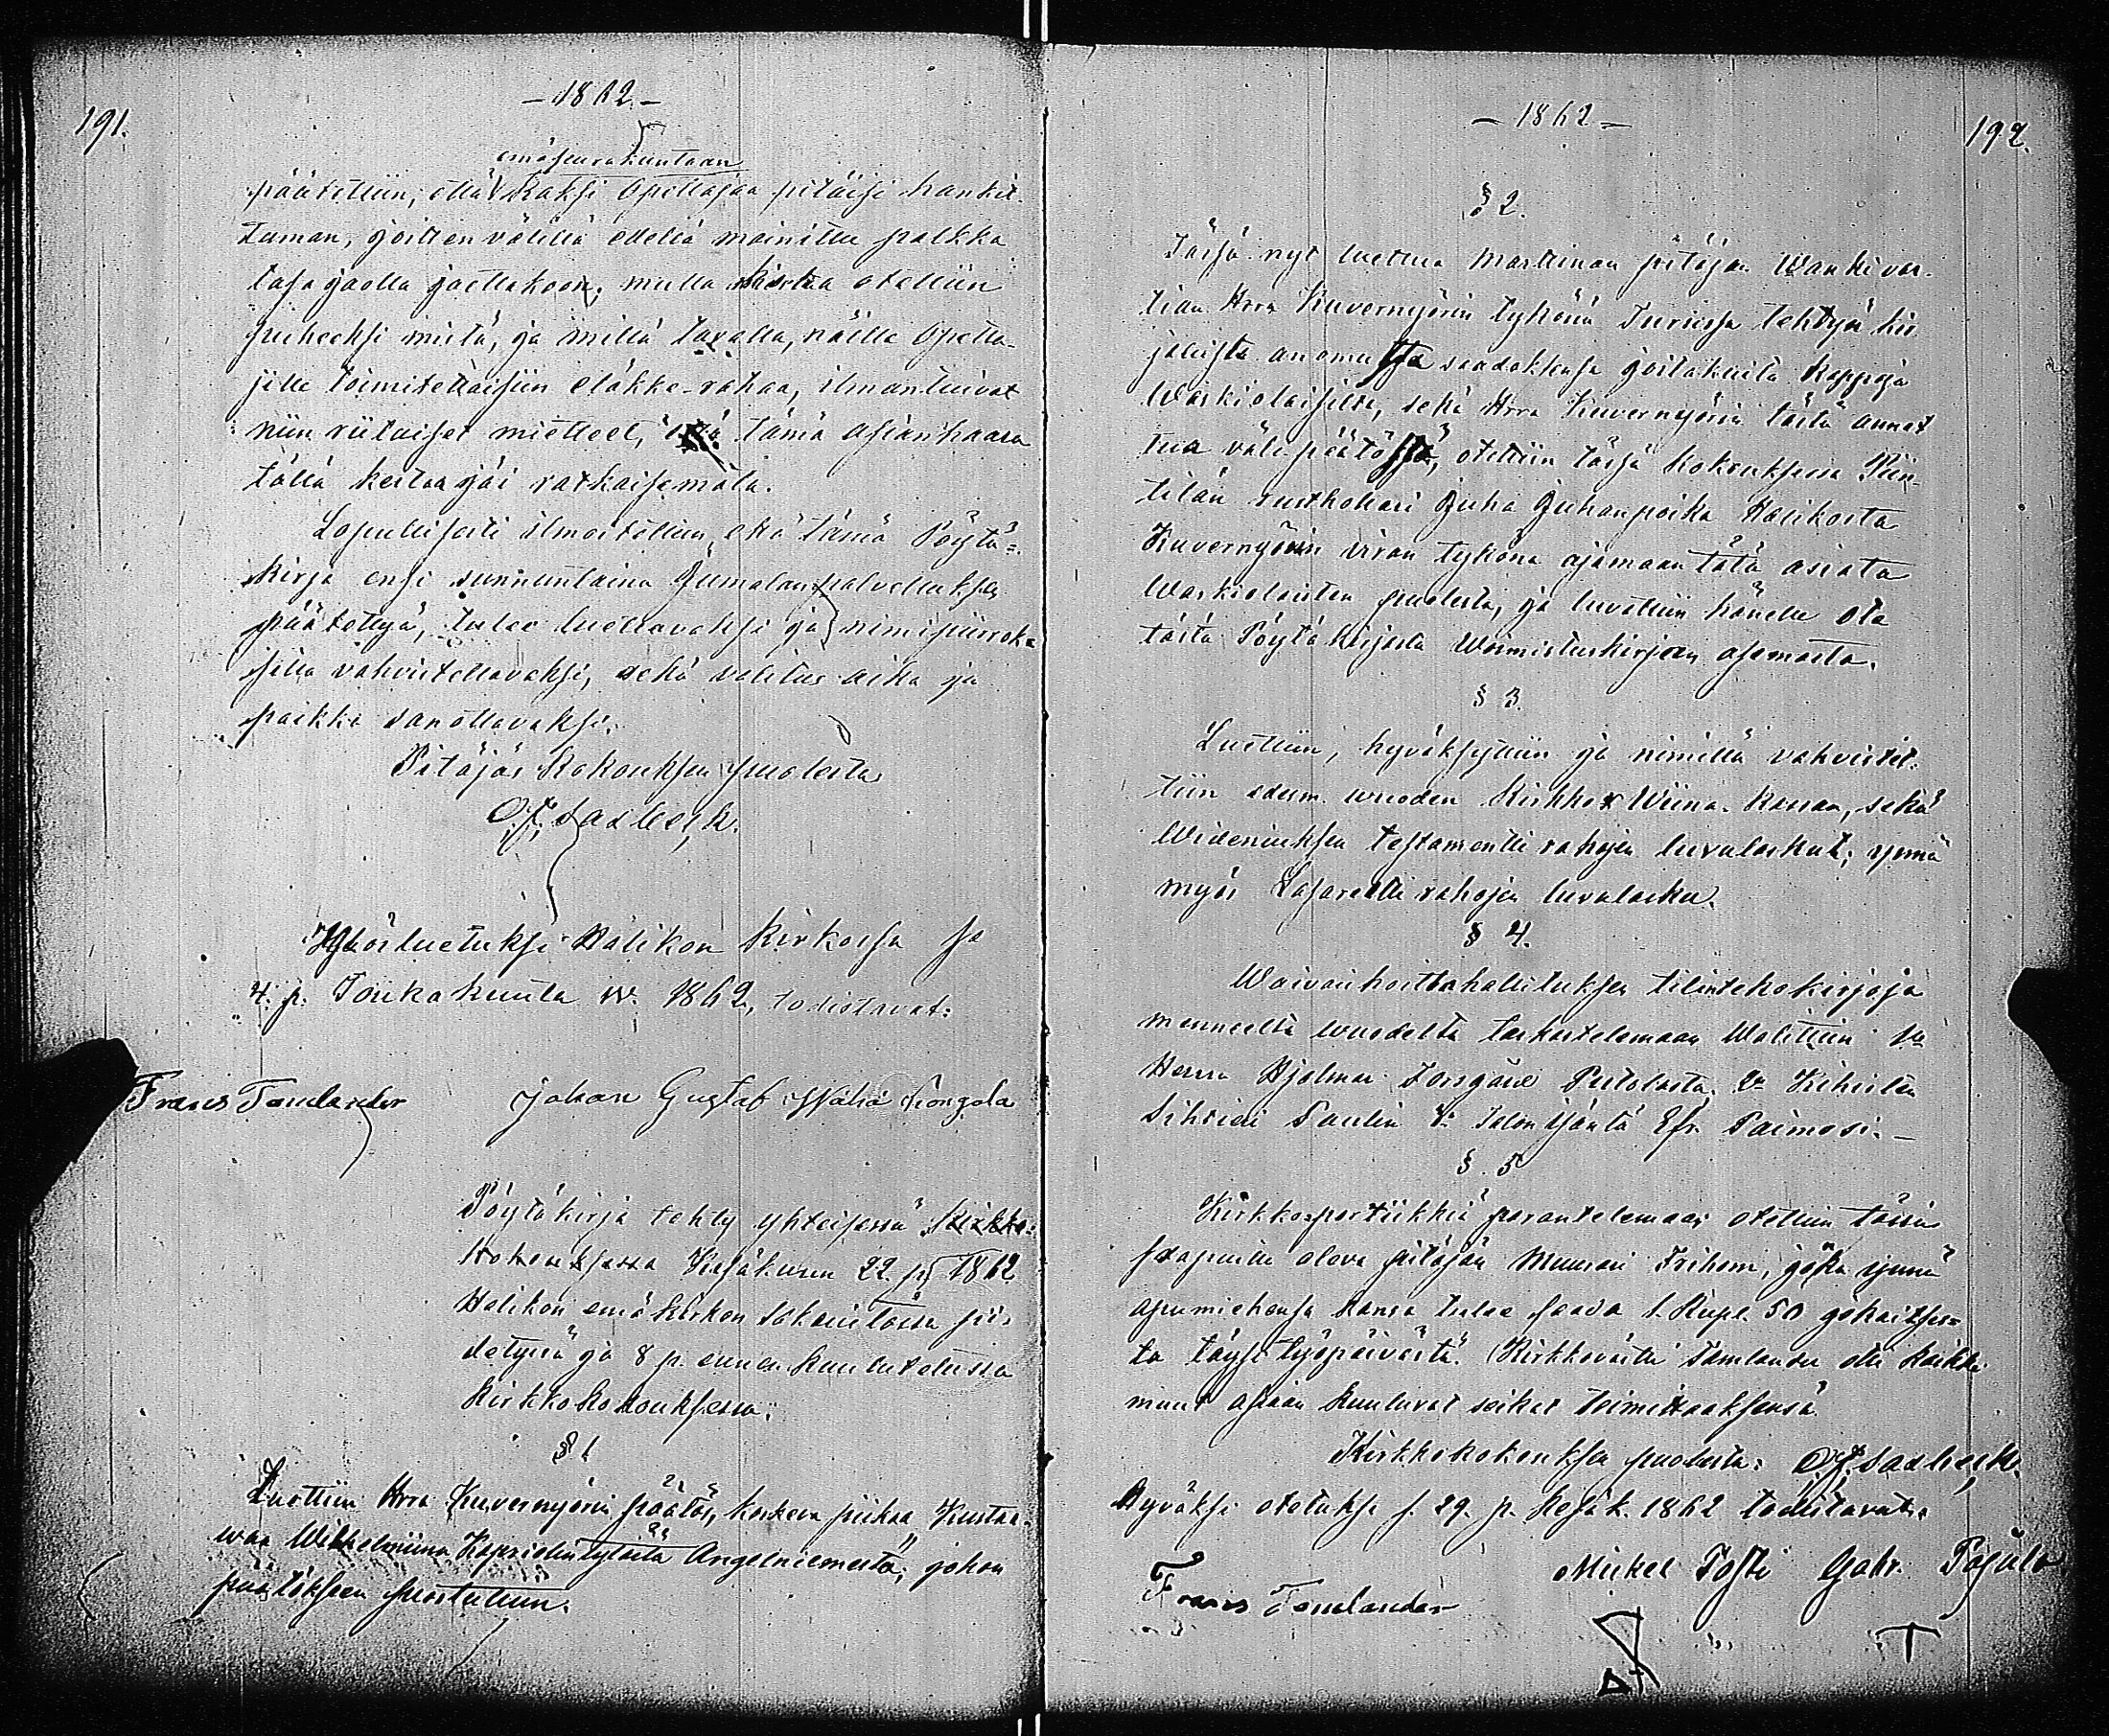 191.
- 1862 -
emäseurakuntaan
päätettiin, että kaksi Opettajaa pitäisi hankit-
taman, joitten välillä edellä mainittu palkka
tasa jaolla jaettakoon; mutta koska otettiin
puheeksi mitä, ja millä tavalla, näille Opetta-
jille toimitettaisiin eläkke-rahaa, ilmantuivat
niin riitaiset mietteet, että tämä asianhaara
tällä kertaa jäi ratkaisemata.
Lopullisesti ilmoitettiin että tämä Pöytä-
kirja ensi sunnuntaina Jumalanpalveluksen
päätettyä, tulee luettavaksi ja nimipiirroksilla
silla vahvistettavaksi, sekä valitus aika ja
paikka sanottavaksi.
Pitäjän Kokouksen puolesta
Ylösluetuksi Halikon Kirkossa
4. p. Toukokuuta w. 1862, todistavat:
Frans Tamlander Johan Gustaf
Pöytäkirja tehty yhteisessä Kirkko-
Kokouksessa Kesäkuun 22. p. 1862
Halikon emäkirkon Sakaristossa pi-
detyssä ja 8 p. ennen kuulutetussa
Kirkkokokouksessa.
§ 1
Luettiin Herra Kuvernyörin päätös, koskeva piikaa Kustaa-
waa Wilhelmiina Kaprielintytärtä Angelniemestä; johon
päätökseen suostuttiin.
- 1862 -
192.
§ 2.
Tässä nyt luettua Marttinan pitäjän Wankivar-
tian Herra Kuvernyörin tykönä Turussa tehtyä kir-
jallista anomusta saadaksensa joitakuita Kappoja
Waskiolaisilta, sekä Herra Kuvernyörin tästä annet-
tua välipäätöstä, otettiin tässä kokouksessa Piin-
tilän rusthollari Juha Juhanpoika Halikosta
Kuvernyörin viran tykönä ajamaan tätä asiata
Waskiolaisten puolesta, ja luvattiin hänelle ote
tästä Pöytäkirjasta Woimistuskirjan asemasta.
§ 3.
Luettiin, hyväksyttiin ja nimillä vahvistet-
tiin edesm. wuoden Kirkko & Wiina-Kassan, sekä
Wideniuksen testamentti rahojen luvulaskut; ynnä
myös Lasaretti rahojen luvulasku.
§ 4.
Waivaishoittohallituksen tilintekokirjoja
menneeltä wuodelta tarkastelemaan Walittiin
Herra Hjalmar
§ 5
Kirkkoportiikkiä parantelemaan otettiin tässä
saapuvilla oleva pitäjän Muurari Friberm, joka ynnä
apumiehensä kansa tulee saada 1. Rupl. 50 jokaitses-
ta täysi työpäivästä. Kirkkoväärti Tamlander otti kaikki
muut asiaan kuuluvat seikat toimittaaksensa.
Kirkkokokouksen puolesta:
Hyväksi otetuksi s. 29. p. Kesäk. 1862 todistavat:
Frans Tamlander Mickel Tosti Gabr. Pajula